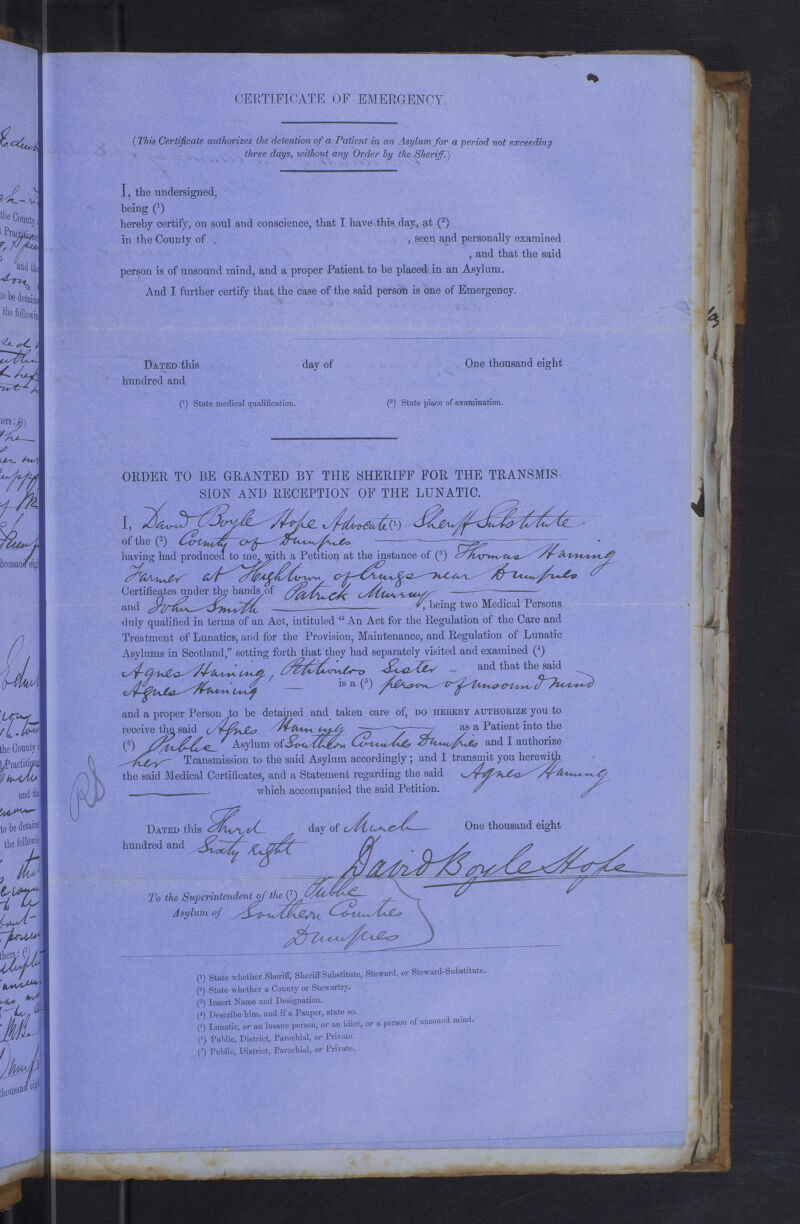 CERTIFICATE OF EMERGENCY.
(This Certificate authorizes the detention of a Patient in an Asylum for a period not exceeding
three days, without any Order by the Sheriff.)
I, the undersigned,
being (1)
hereby certify, on soul and conscience, that I have this day, at (2)
in the County of , seen and personally examined
, and that the said
person is of unsound mind, and a proper Patient to be placed in an Asylum.
And I further certify that the case of the said person is one of Emergency.
DATED this day of One thousand eight
hundred and
(1) State medical qualification. (2) State place of examination.
ORDER TO BE GRANTED BY THE SHERIFF FOR THE TRANSMIS-
SION AND RECEPTION OF THE LUNATIC.
I, David Boyle Hope Advocate (1) Sheriff Substitute
of the (2) County of Dumfries
having had produced to me, with a Petition at the instance of (3) Thomas Haining
Farmer at Hightown of near Dumfries
Certificates under the hands of Patrick Murray
and John Smith , being two Medical Persons
duly qualified in terms of an Act, intituled "An Act for the Regulation of the Care and
Treatment of Lunatics, and for the Provision, Maintenance, and Regulation of Lunatic
Asylums in Scotland," setting forth that they had separately visited and examined (4)
Agnes Haining, Petitioners Sister - and that the said
Agnes Haining is a (5) person of unsound mind
and a proper Person to be detained and taken care of, DO HEREBY AUTHORIZE you to
receive the said Agnes Haining as a Patient into the
(6) Public Asylum of Southern Counties Dumfries and I authorize
her Transmission to the said Asylum accordingly; and I transmit you herewith
the said Medical Certificates, and a Statement regarding the said Agnes Haining
which accompanied the said Petition.
DATED this Third day of March One thousand eight
hundred and Sixty Eight
David Boyle Hope
To the Superintendent of the (7) Public
Asylum of Southern Counties
Dumfries
(1) State whether Sheriff, Sheriff-Substitute, Steward, or Steward-Substitute.
(2) State whether a County or Stewartry.
(3) Insert Name and Designation.
(4) Describe him, and if a Pauper, state so.
(5) Lunatic, or an insane person, or an idiot, or a person of unsound mind.
(6) Public, District, Parochial, or Private.
(7) Public, District, Parochial, or Private.